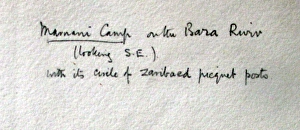 Mamani Camp on the Bara River
(looking S.E.)
with its circle of zaribaed picquet posts